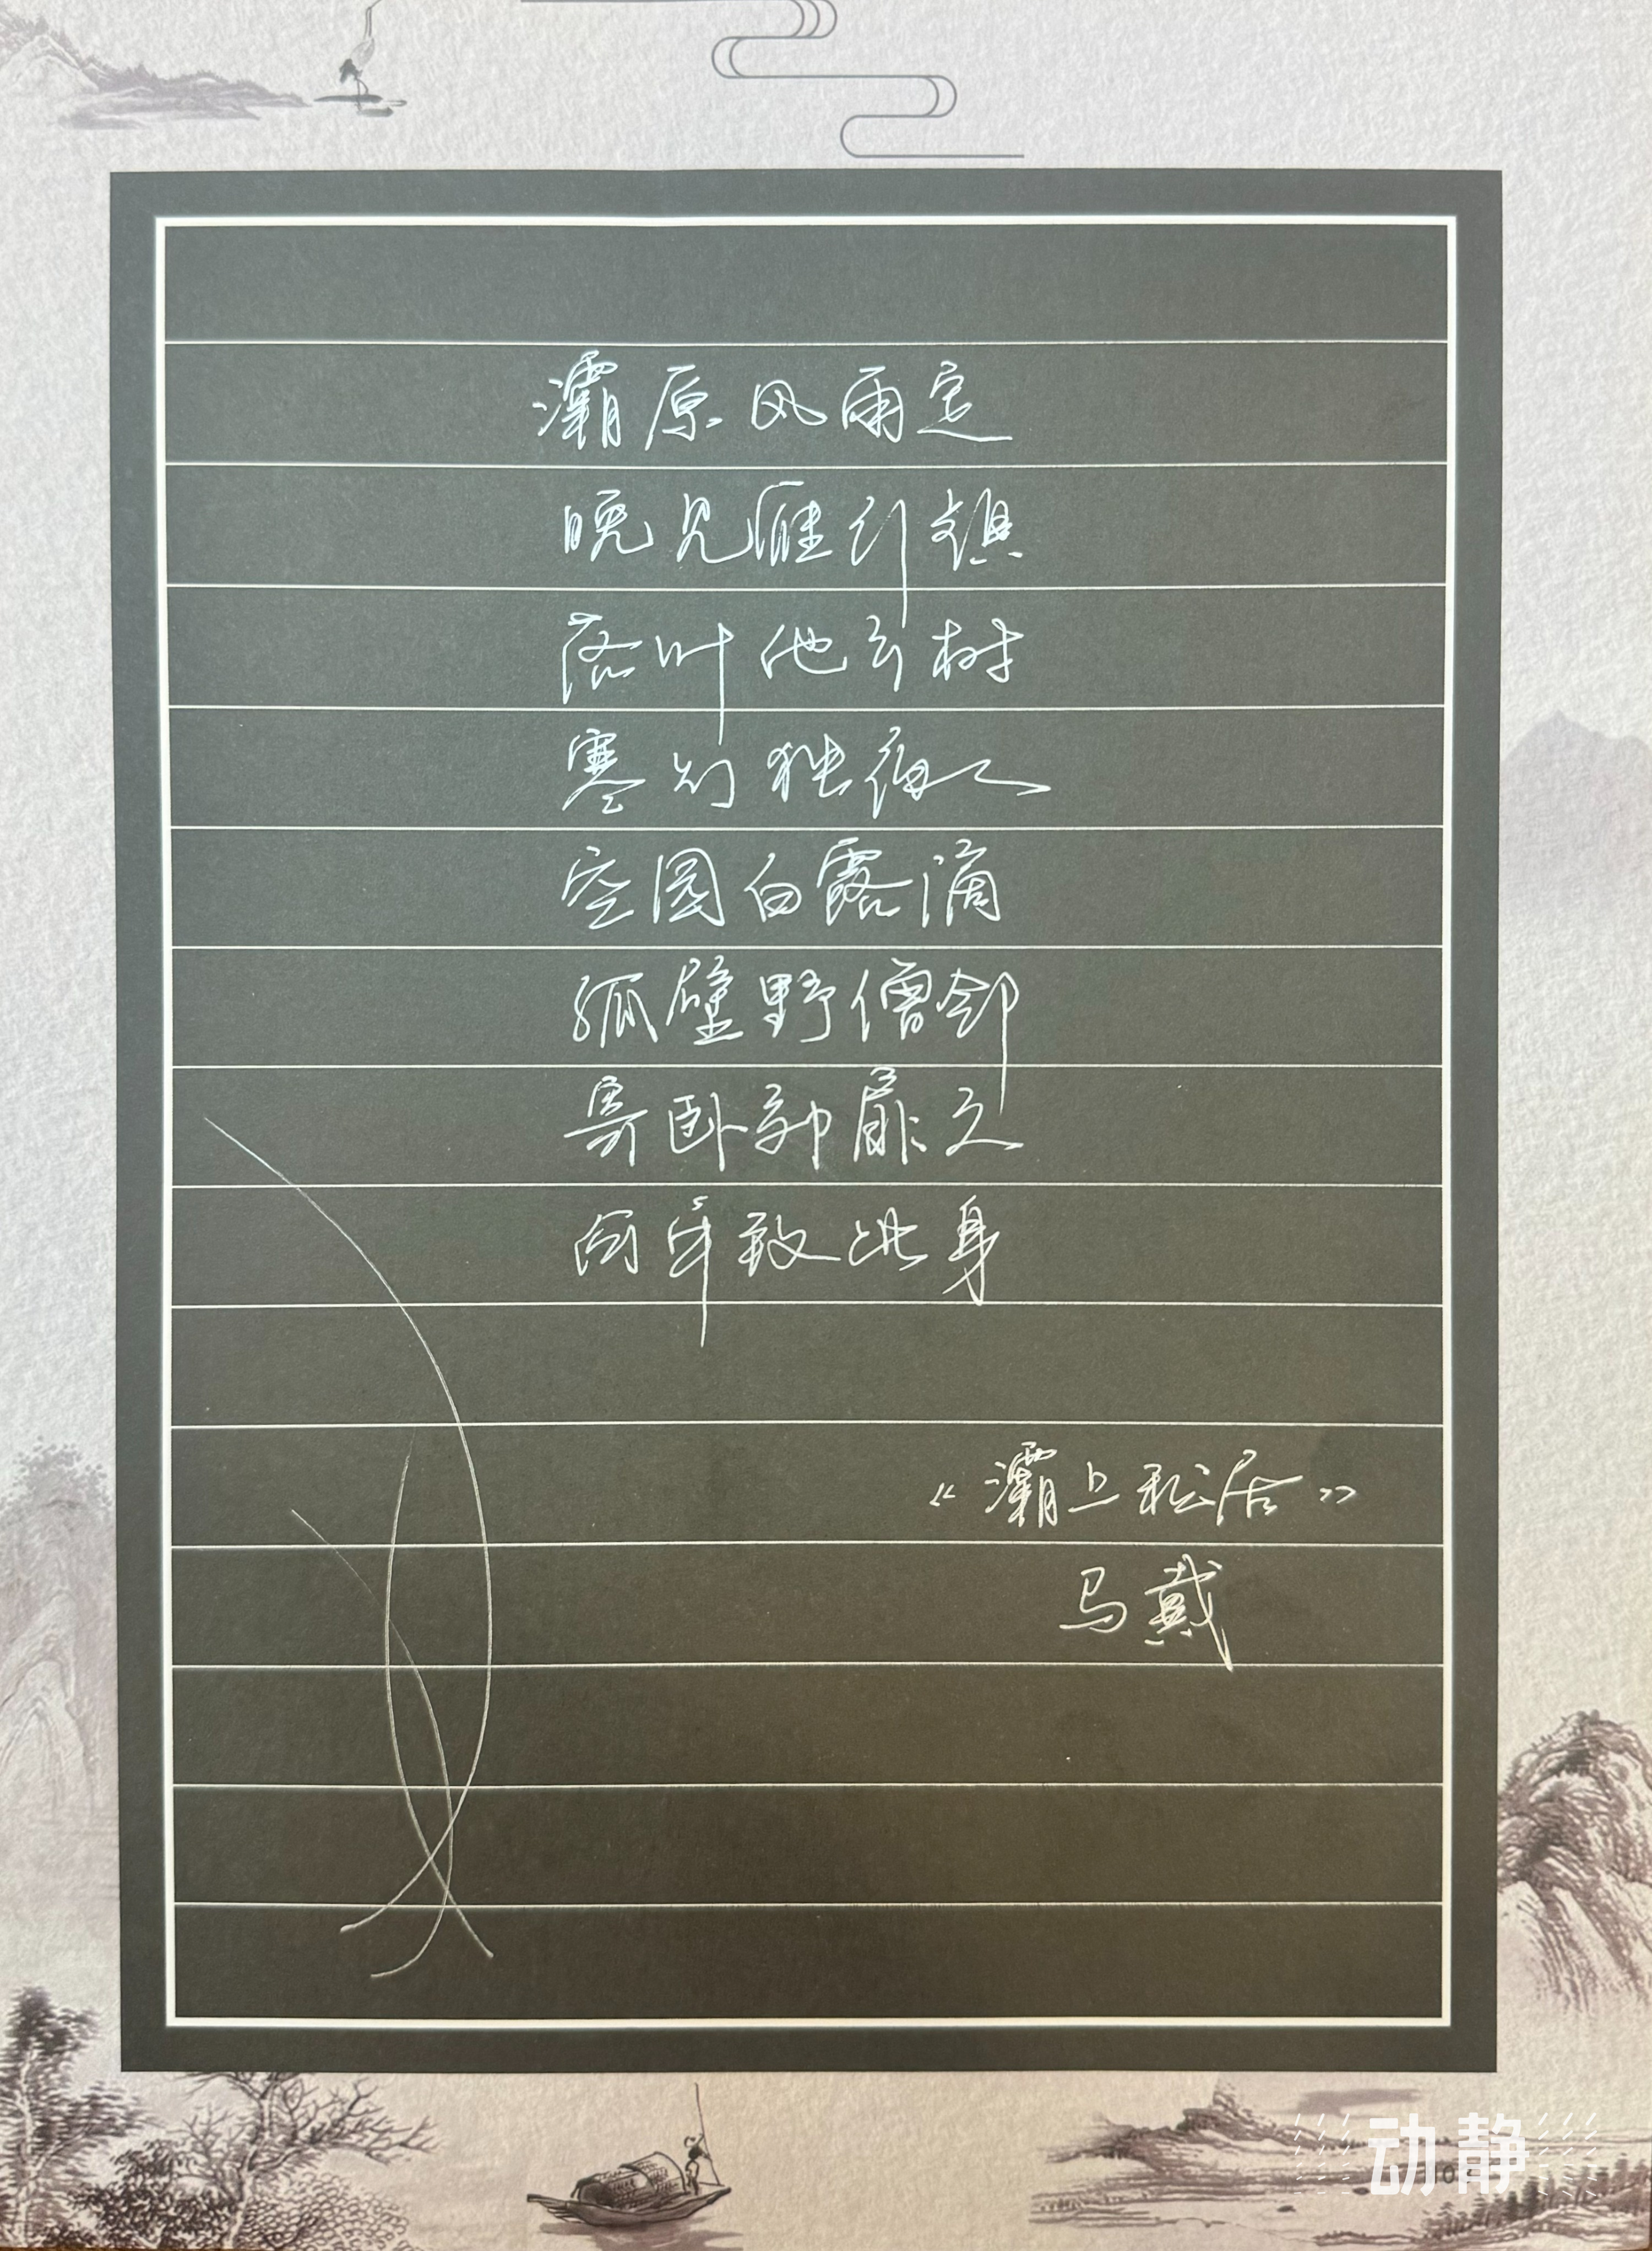 灞原风雨定
晚见雁行频
落叶他乡树
寒灯独夜人
空园白露滴
孤壁野僧邻
寄卧郊扉久
何年致此身
《灞上秋居》
马戴
动静